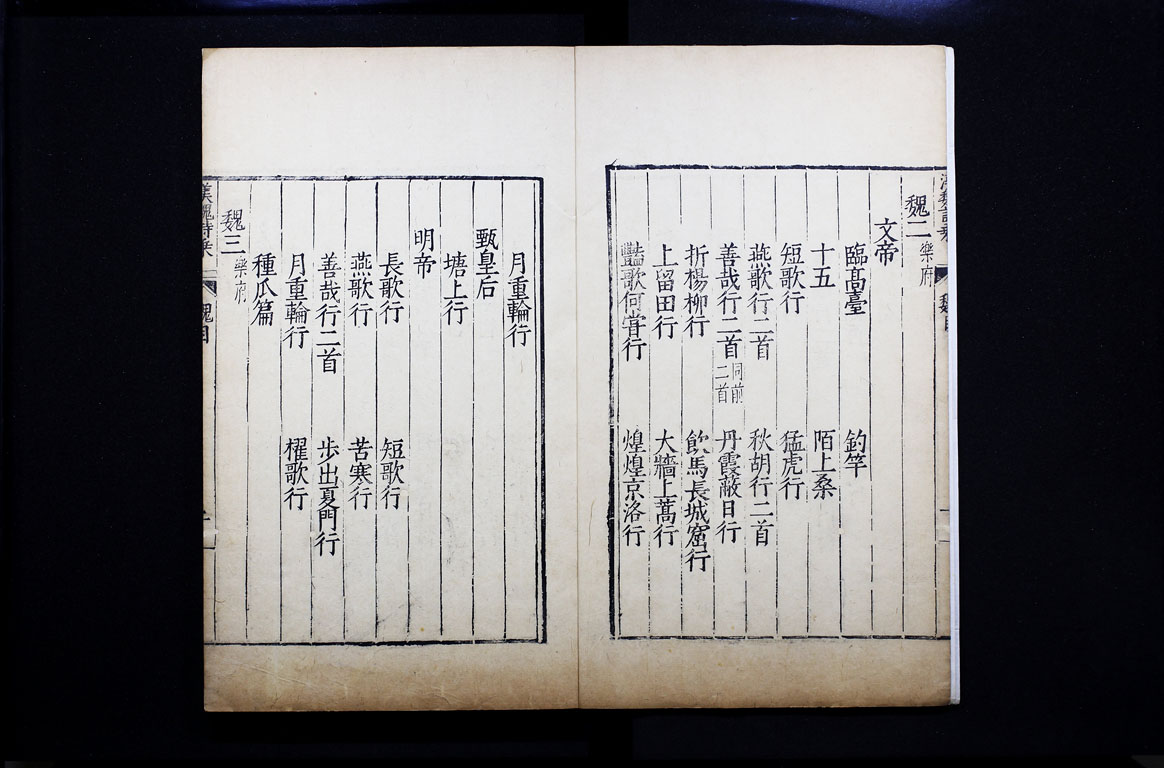 魏二 樂府
文帝
臨髙臺 釣竿
十五 陌上桑
短歌行 猛虎行
燕歌行二首 秋胡行二首
善哉行二首 同前二首 丹霞蔽日行
折楊柳行 飲馬長城窟行
上留田行 大牆上蒿行
豔歌何甞行 煌煌京洛行
月重輪行
甄皇后
塘上行
明帝
長歌行 短歌行
燕歌行 苦寒行
善哉行二首 步出夏門行
月重輪行 櫂歌行
種瓜篇
魏三 樂府
漢魏詩乘 魏目